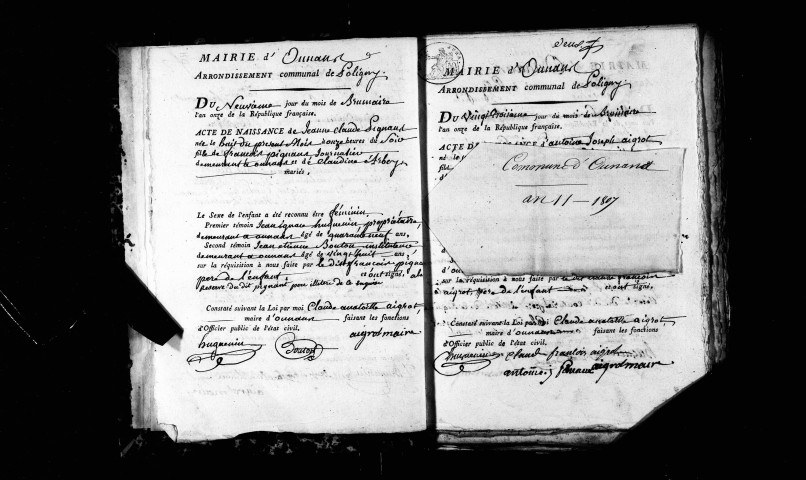 MAIRIE d' Ounans
ARRONDISSEMENT communal de Poligny.
DU Neuvieme jour du mois de Brumaire
l'an onze de la République française.
ACTE DE NAISSANCE de Jeanne Claude Pignant
née le huit du present Mois a onze heures du Soir
fille de françois pignant Journalier
demeurant a ounans et de Claudine d'arboy
mariés.
Le Sexe de l'enfant a été reconnu être féminin.
Premier témoin Jean ignace huguenin propriétaire,
demeurant a ounans âgé de quarante neuf ans,
Second témoin Jean etienne Bouton instituteur
demeurant a ounans âgé de vingt huit ans,
sur la réquisition à nous faite par le dit francois pignant
pere de l'enfant. et ont signé, a la
reserve du dit pignant pour illiteré de ce enquis
Constaté suivant la Loi par moi Claude anatoille aigrot,
maire d'ounans faisant les fonctions
d'Officier public de l'état civil.
huguenin Bouton aigrot maire
MAIRIE d'Ounans
ARRONDISSEMENT communal de Poligny.
DU Vingt troisieme jour du mois de Brumaire
l'an onze de la République française.
ACTE D NCE d'antoine Joseph aigrot
né le
fils
d'
Commune d'Ounans
an 11 — 1807
sur la réquisition à nous faite par le dit claude françois
aigrot, pere de l'enfant et ont signé,
Constaté suivant la Loi par moi Claude anatoille aigrot,
maire d'ounans faisant les fonctions
d'Officier public de l'état civil.
huguenin claude francois aigrot
antoine aigrot maire